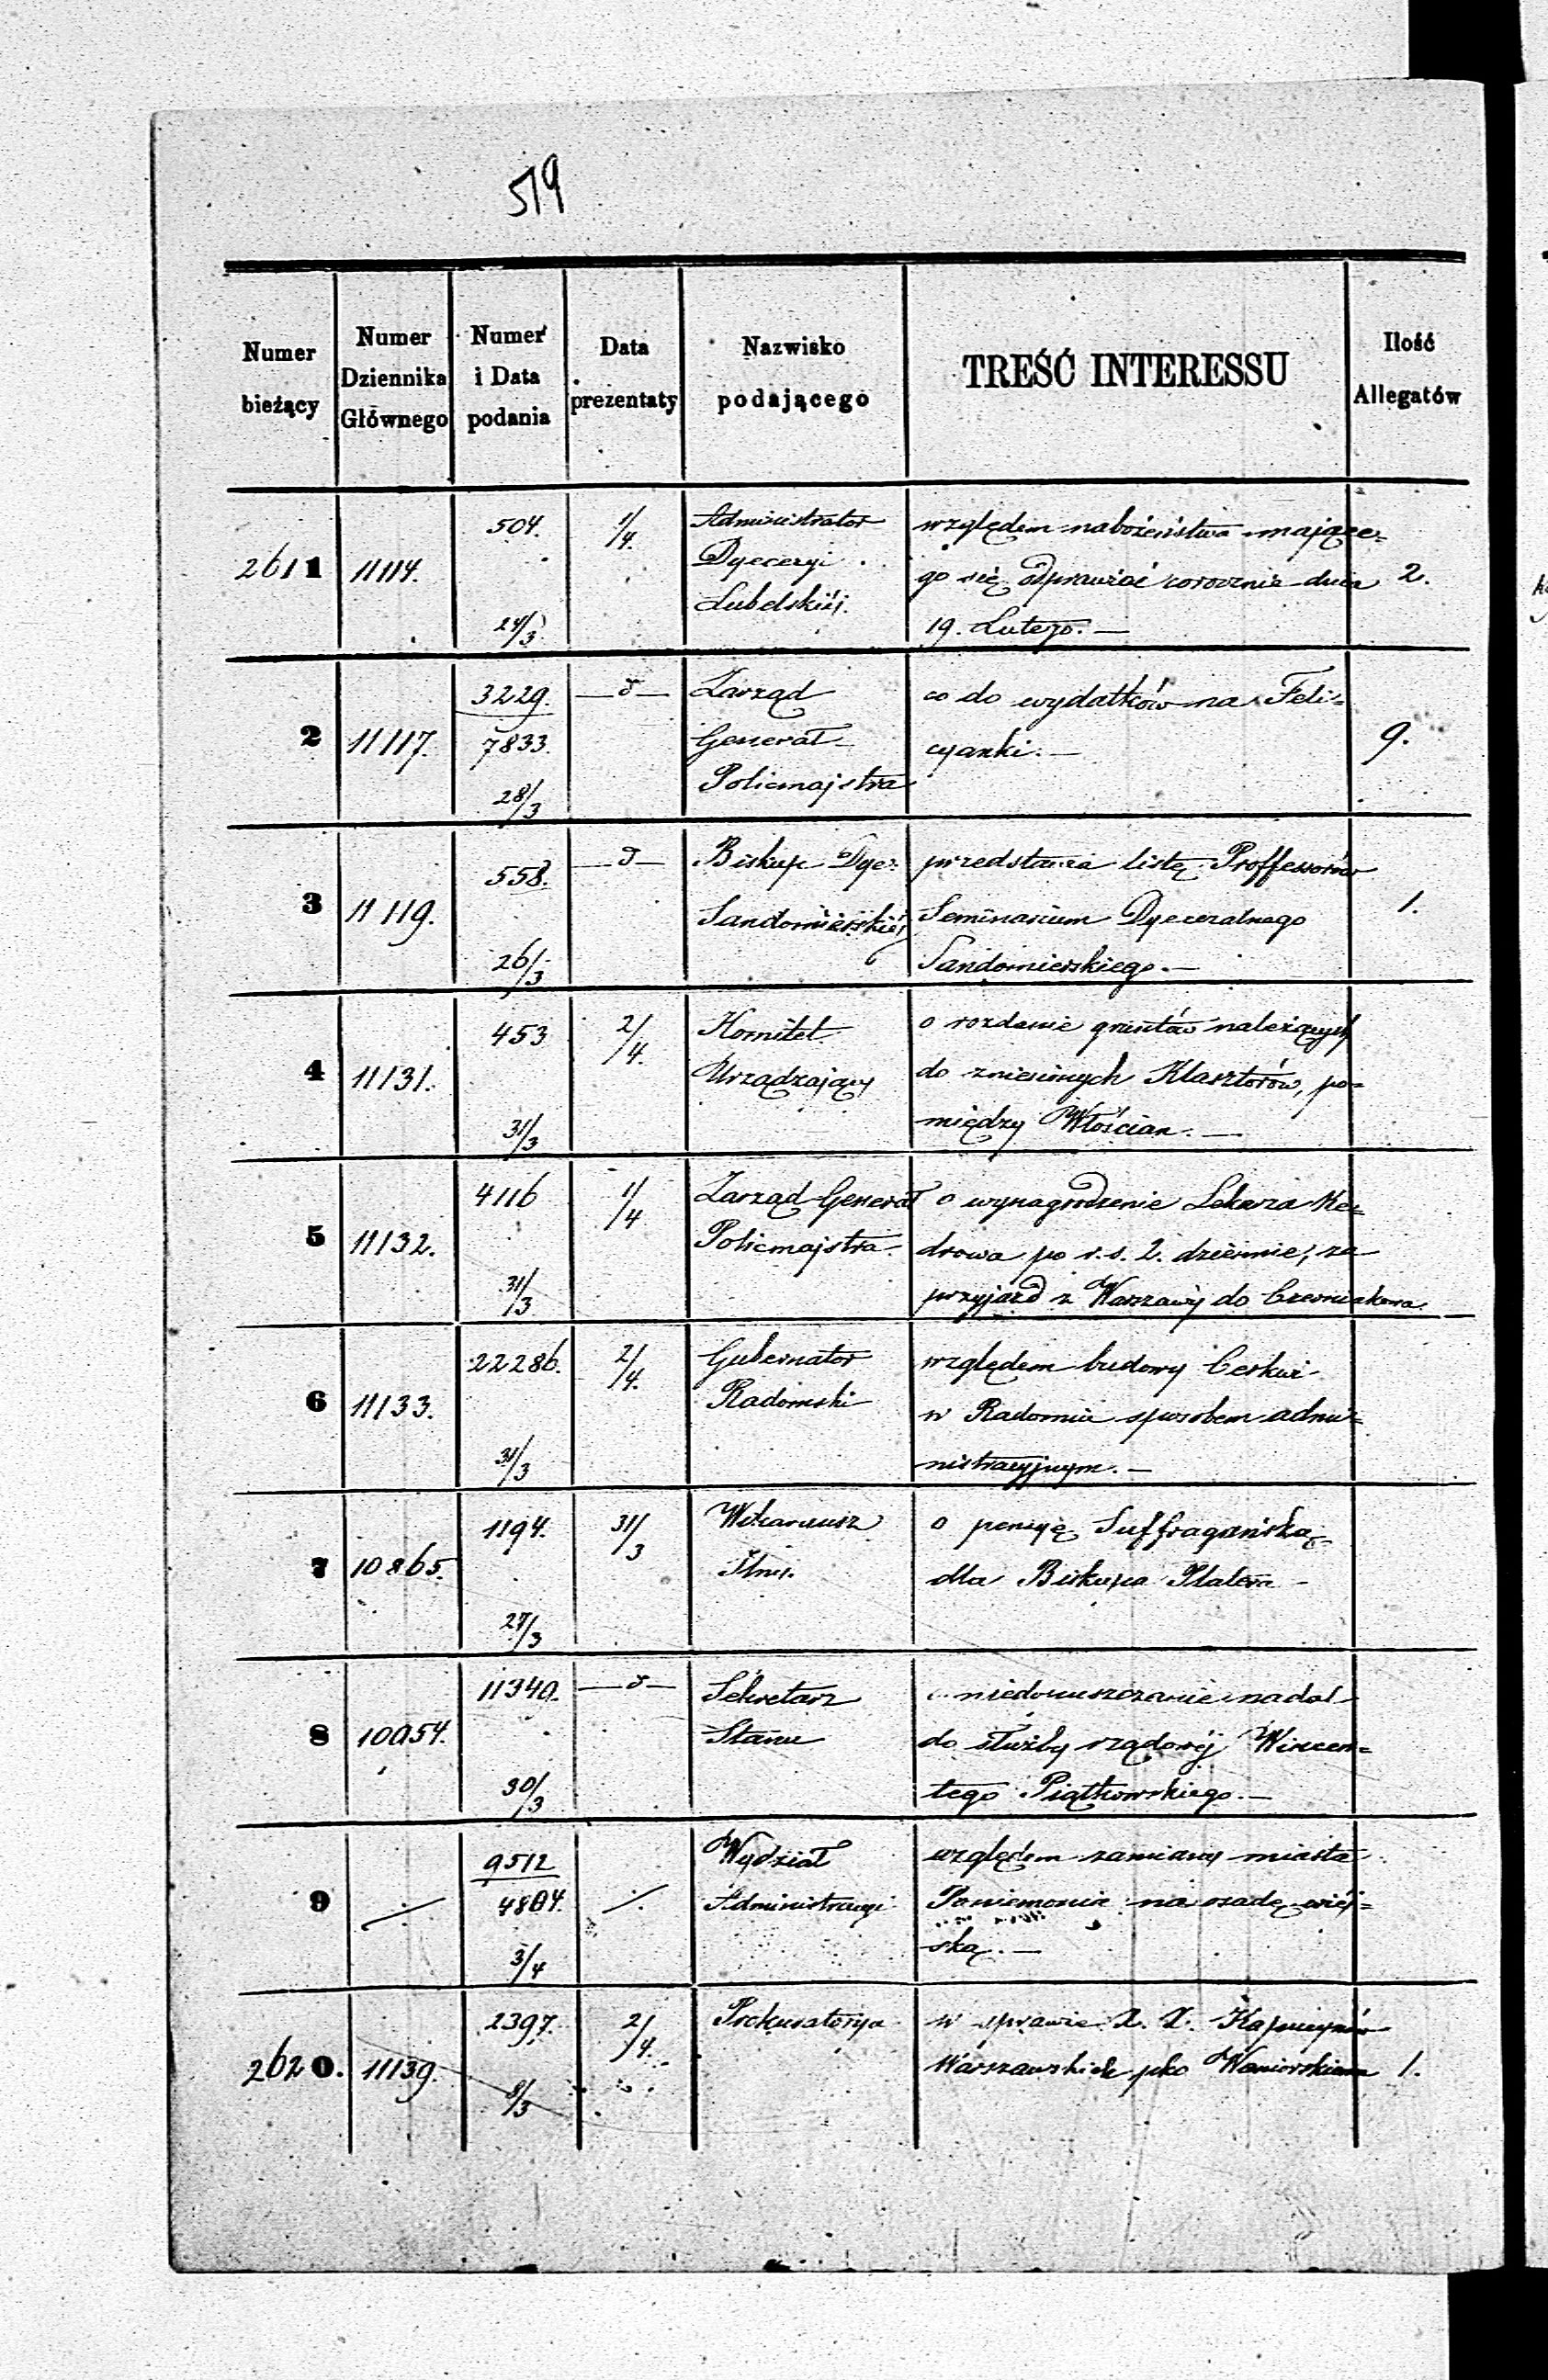 519
Numer bieżący | Numer Dziennika Głównego | Numer i Data podania | Data prezentaty | Nazwisko podającego | TREŚĆ INTERESSU | Ilość Allegatów
2611 | 11114. | 504. | 1/4. | Administrator | względem nabożeństwa mające=
Dyecezyi | go się odprawiać corocznie dnia | 2.
24/3 | Lubelskiéj. | 19. Lutego. —
2 | 11117. | 3229. | — d — | Zarząd | co do wydatków na Feli=
7833. | Generał | cyanki. — | 9.
28/3 | Policmajstra
3 | 11119. | 558. | — d — | Biskup Dyec: | przedstawia listę Proffessorów
Sandomierskiéj | Seminarium Dyecezalnego | 1.
26/3 | Sandomierskiego. —
4 | 11131. | 453 | 2/4. | Komitet | o rozdanie gruntów należących
Urządzający | do zniesionych Klasztorów, po=
31/3 | między Włościan. —
5 | 11132. | 4116 | 1/4 | Zarząd Generał | o wynagrodzenie Lekarza
Policmajstra. | po r. s. 2. dziennie, za
31/3 | przyjazd z Warszawy do Czerniakowa.
6 | 11133. | 22286. | 2/4. | Gubernator | względem budowy Cerkwi
Radomski | w Radomiu sposobem admi=
31/3 | nistracyjnym. —
7 | 10865. | 1194. | 31/3 | o pensyę Suffragańską
dla Biskupa Platera —
27/3
8 | 11340. | — d — | Sekretarz | niedopuszczanie nadal
Stanu | do służby rządowéj Wincen=
30/3 | tego Piątkowskiego. —
9 | ./. | 9512 | ./. | Wydział | względem zamiany miasta
4804. | Administracyi | Poniemonia na osadę wiéj=
3/4 | ską. —
2620. | 11139. | 2397. | 2/4. | Prokuratorya | w sprawie X. X. Kapucynów
8/3 | Warszawskich pko | 1.